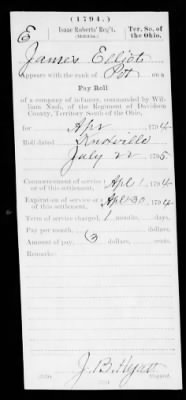 (1794.)
E Isaac Roberts' Reg't. Ter. So. of the Ohio.
(MILITIA.)
James Elliot
Appears with the rank of Pvt. on a
Pay Roll
of a company of infantry, commanded by Wil-
liam Nash, of the Regiment of Davidson
County, Territory South of the Ohio,
for Apr, 1794
Roll dated Knoxville
July 22, 1795.
Commencement of service or of this settlement, Apl 1, 1794
Expiration of service or of this settlement, Apl 30, 1794
Term of service charged, 1 months, days
Pay per month, dollars, cents
Amount of pay, 3 dollars, cents
Remarks:
J. B. Hyatt
Copyist.